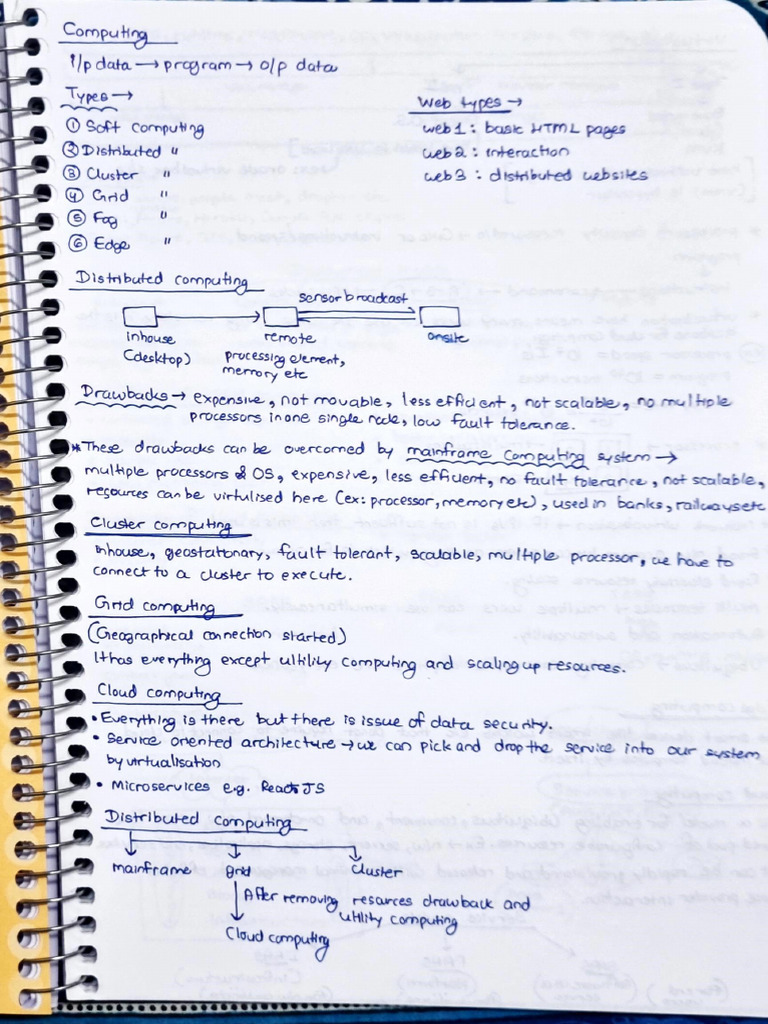 Computing
i/p data → program → o/p data
Types →
① Soft computing
② Distributed "
③ Cluster "
④ Grid "
⑤ Fog "
⑥ Edge "
Web types →
web1 : basic HTML pages
web2 : interaction
web3 : distributed websites
Distributed computing
sensor broadcast
inhouse
(desktop)
remote
processing element,
memory etc
onsite
Drawbacks → expensive, not movable, less efficient, not scalable, no multiple
processors in one single node, low fault tolerance.
* These drawbacks can be overcomed by mainframe computing system →
multiple processors & OS, expensive, less efficient, no fault tolerance, not scalable,
resources can be virtulised here (ex: processor, memory etc), used in banks, railways etc
Cluster computing
Inhouse, geostationary, fault tolerant, scalable, multiple processor, we have to
connect to a cluster to execute.
Grid computing
(Geographical connection started)
It has everything except ultility computing and scaling up resources.
Cloud computing
• Everything is there but there is issue of data security.
• Service oriented architecture → we can pick and drop the service into our system
by virtualisation
• Microservices e.g. React JS
Distributed computing
mainframe grid cluster
After removing resources drawback and
utility computing
Cloud computing